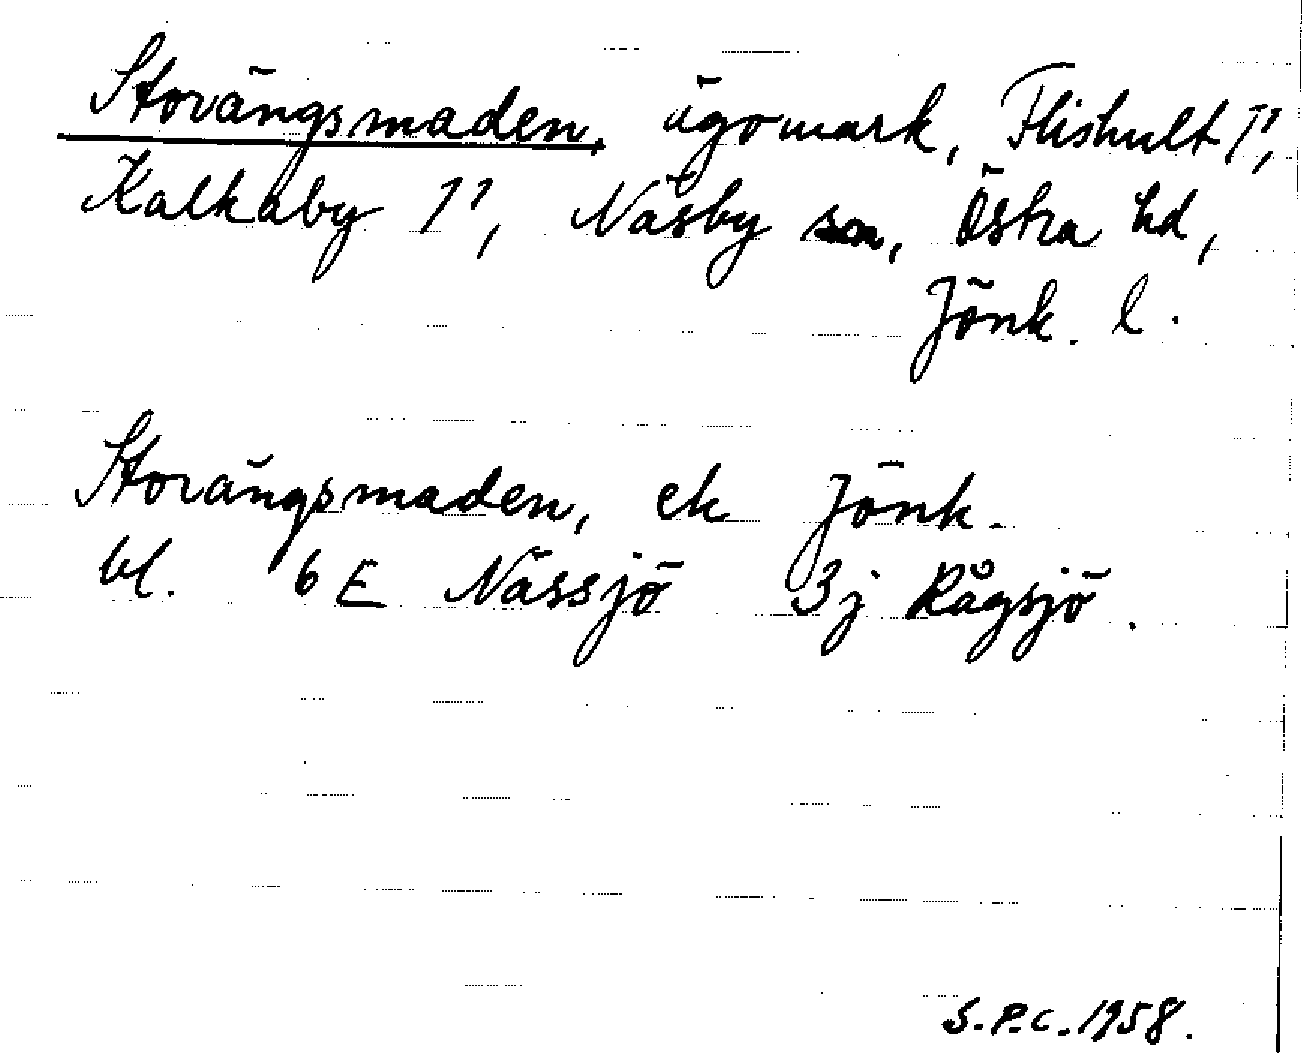 Storängsmaden, ägomark, Flishult 1¹,
Kalkaby 1¹, Näsby sn, Östra hd,
Jönk. l.
Storängsmaden, ek Jönk.
bl. 6 E Nässjö 3j Rågsjö.
S.P.C. 1958.